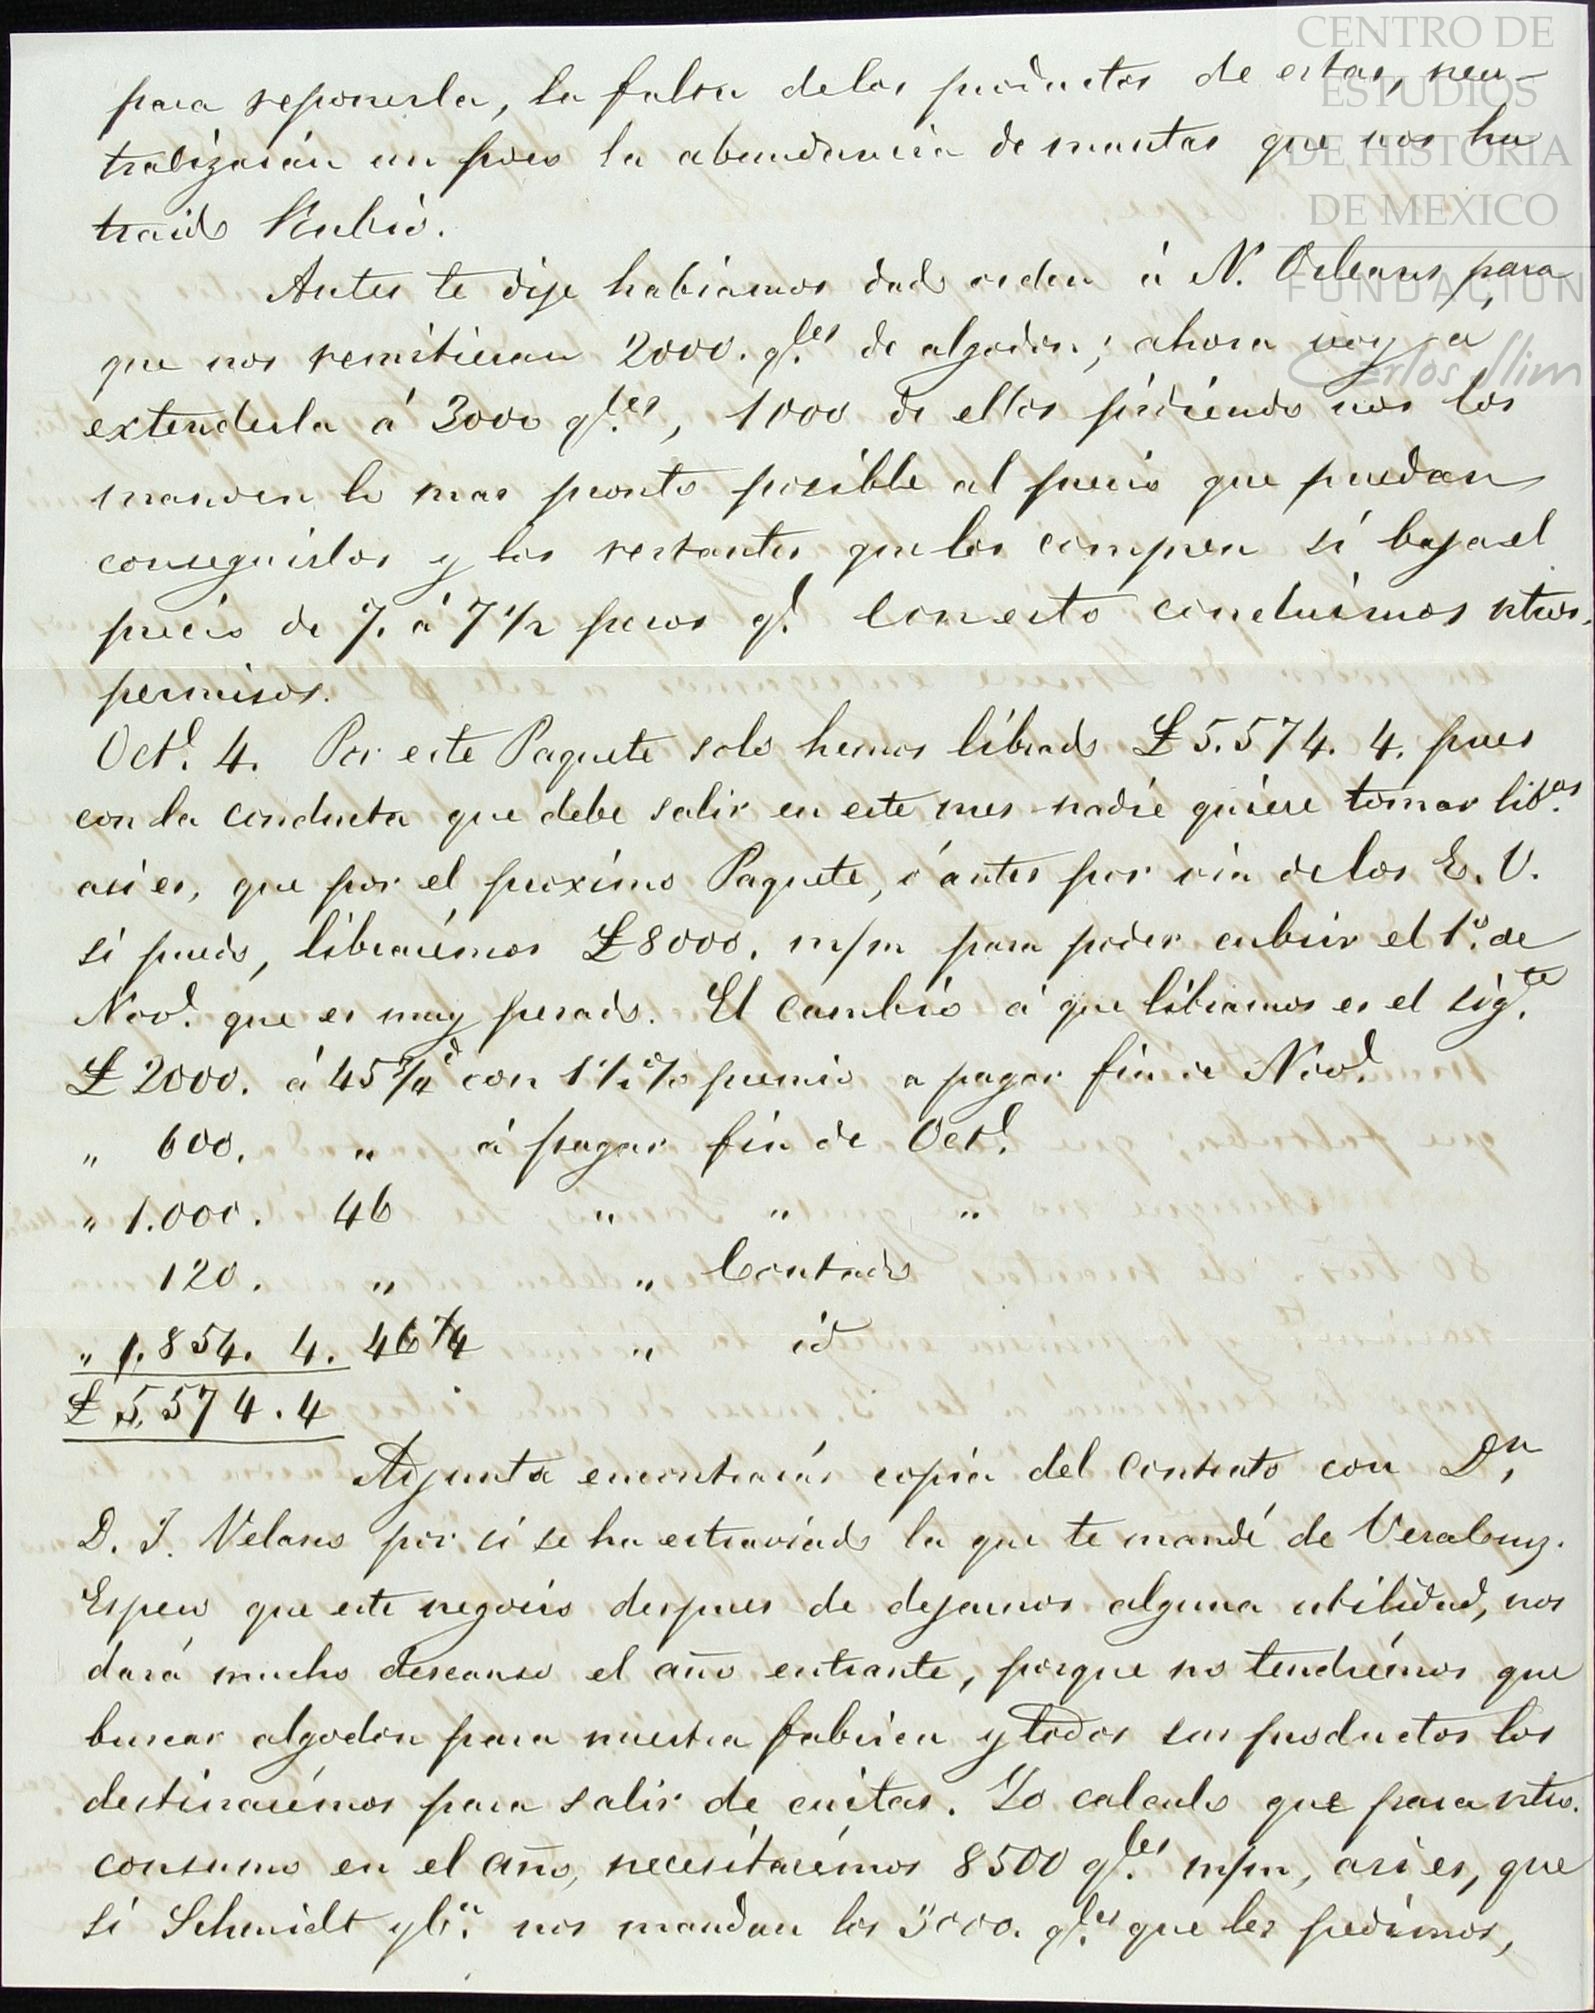 CENTRO DE
ESTUDIOS
DE HISTORIA
DE MEXICO
FUNDACION
Carlos Slim
para reponerla, la falsa delos productos de estas, neu-
tralizarán un poco la abundancia de mantas que nos ha
traido Rubio.
Antes te dije habiamos dado orden á N. Orleans para
que nos remitieran 2000. q.les de algodon; ahora voy a
extenderla á 3000 q.les, 1000 de ellos pidiendo nos los
manden lo mas pronto posible al precio que puedan
conseguirlos y los restantes que los compren si baja el
precio de 7. á 7 1/2 pesos q.l Con esto concluimos ntros.
permisos.
Oct.e 4. Por este Paquete solo hemos librado £ 5.574. 4. pues
con la conducta que debe salir en este mes nadie quiere tomar lib.as
asi es, que por el proximo Paquete, ó antes por via de los E. U.
si puedo, librarémos £ 8000. m/m para poder cubrir el 1.o de
Nov.e que es muy pesado. El cambio á que libramos es el sig.te
£ 2000. á 45 3/4 d con 1 1/2 % premio a pagar fin de Nov.e
" 600. " á pagar fin de Oct.e
" 1.000. 46 " " "
120. " " Contado
" 1.854. 4. 46 1/4 " id
£ 5.574.4
Adjunta encontrarás copia del contrato con D.n
D. J. Velasco por si se ha estraviado la que te mandé de VeraCruz.
Espero que este negocio despues de dejarnos alguna utilidad, nos
dará mucho descanso el año entrante, porque no tendrémos que
buscar algodon para nuestra fabrica y todos sus productos los
destinarémos para salir de cuitas. Yo calculo que para ntro.
consumo en el año, necesitarémos 8500 q.les m/m, asi es, que
si Schmidt y C.a nos mandan los 3000. q.les que les pedimos,